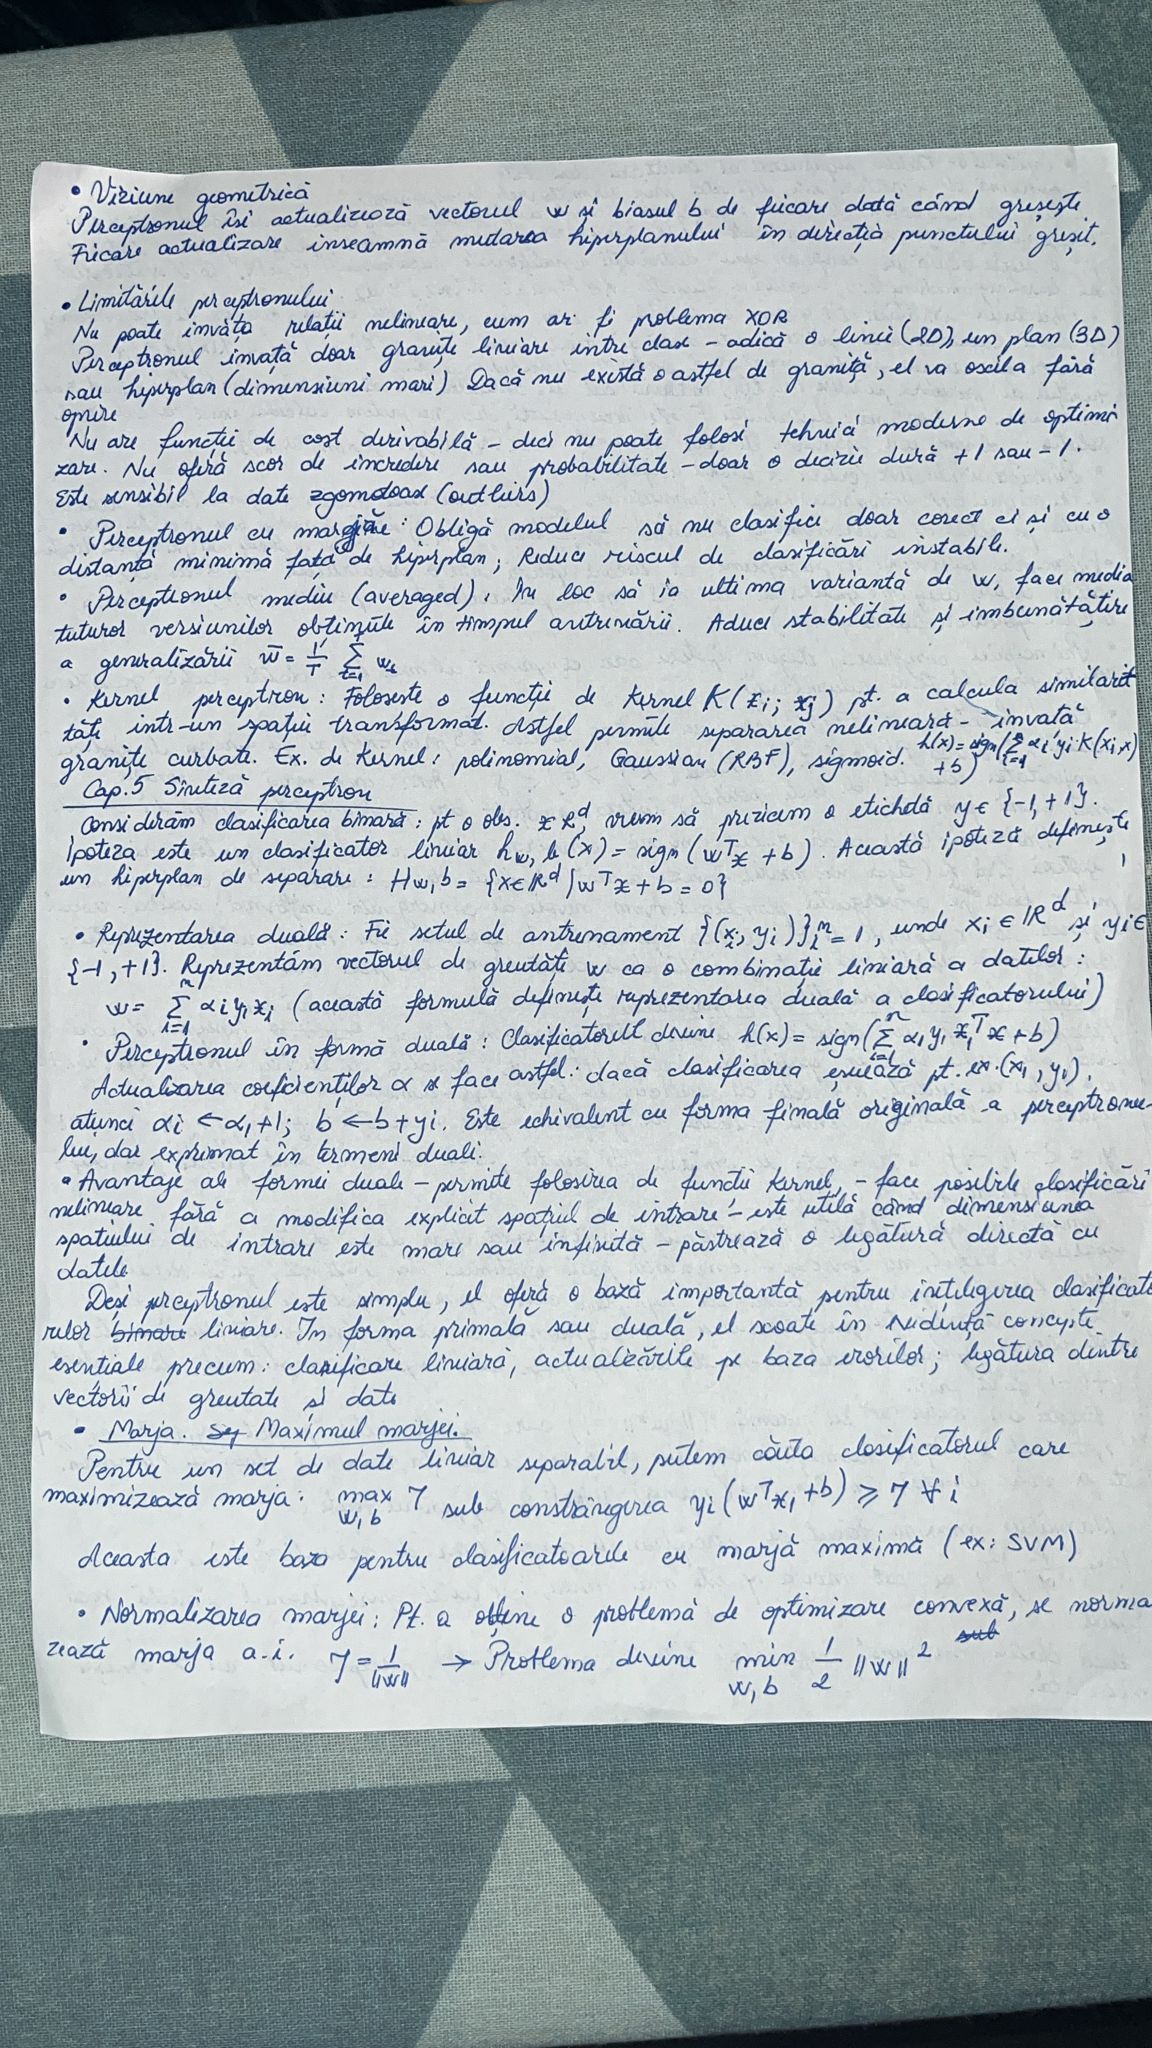 • Viziune geometrică
Perceptronul își actualizează vectorul w și biasul b de fiecare dată când greșește
Fiecare actualizare înseamnă mutarea hiperplanului în direcția punctului greșit.
• Limitările perceptronului
Nu poate învăța relații neliniare, cum ar fi problema XOR
Perceptronul învață doar granițe liniare între clase – adică o linie (2D), un plan (3D)
sau hiperplan (dimensiuni mari) Dacă nu există o astfel de graniță, el va oscila fără
oprire
Nu are funcție de cost derivabilă – deci nu poate folosi tehnici moderne de optimi
zare. Nu oferă scor de încredere sau probabilitate – doar o decizie dură +1 sau -1.
Este sensibil la date zgomotoase (outliers)
• Perceptronul cu marjă: Obligă modelul să nu clasifice doar corect ci și cu o
distanță minimă față de hiperplan; Reduce riscul de clasificări instabile.
• Perceptronul mediu (averaged). În loc să ia ultima variantă de w, face media
tuturor versiunilor obținute în timpul antrenării. Aduce stabilitate și îmbunătățire
a generalizării w̄ = 1/T Σ_{t=1}^{T} w_t
• Kernel perceptron: Folosește o funcție de kernel K(xi; xj) pt. a calcula similarit
tăte într-un spațiu transformat. Astfel permite separarea neliniară – învață
granițe curbate. Ex. de Kernel: polinomial, Gaussian (RBF), sigmoid. h(x) = sign(Σ_{i=1}^{n} αi yi K(xi,x)
+b)
Cap.5 Sinteză perceptron
Considerăm clasificarea binară: pt o obs. x ℝ^d vrem să prezicem o etichetă y ∈ {-1, +1}.
Ipoteza este un clasificator liniar h_{w,b}(x) = sign(w^T x + b). Această ipoteză definește
un hiperplan de separare: H_{w,b} = {x ∈ ℝ^d / w^T x + b = 0}
• Reprezentarea duală: Fie setul de antrenament {(xi, yi)}_i^n = 1, unde xi ∈ ℝ^d și yi ∈
{-1, +1}. Reprezentăm vectorul de greutăți w ca o combinație liniară a datelor:
w = Σ_{i=1}^{n} αi yi xi (această formulă definește reprezentarea duală a clasificatorului)
• Perceptronul în formă duală: Clasificatorul devine h(x) = sign(Σ_{i=1}^{n} αi yi xi^T x + b)
Actualizarea coeficienților α se face astfel: dacă clasificarea eșuează pt. ex. (xi, yi),
atunci αi ← αi+1; b ← b + yi. Este echivalent cu forma finală originală a perceptronu-
lui, dar exprimat în termeni duali.
• Avantaje ale formei duale – permite folosirea de funcții kernel, – face posibile clasificări
neliniare fără a modifica explicit spațiul de intrare – este utilă când dimensiunea
spațiului de intrare este mare sau infinită – păstrează o legătură directă cu
datele
Deși perceptronul este simplu, el oferă o bază importantă pentru înțelegerea clasificato
rilor binare liniare. În forma primală sau duală, el scoate în evidență concepte
esențiale precum: clasificare liniară, actualizările pe baza erorilor; legătura dintre
vectorii de greutate și date
• Marja. Maximul marjei.
Pentru un set de date liniar separabil, putem căuta clasificatorul care
maximizează marja: max_{w,b} γ sub constrângerea yi(w^T xi + b) ≥ γ ∀ i
Aceasta este baza pentru clasificatoarele cu marjă maximă (ex: SVM)
• Normalizarea marjei: Pt. a obține o problemă de optimizare convexă, se norma
sub
zează marja a.i. γ = 1/||w|| → Problema devine min_{w,b} 1/2 ||w||²